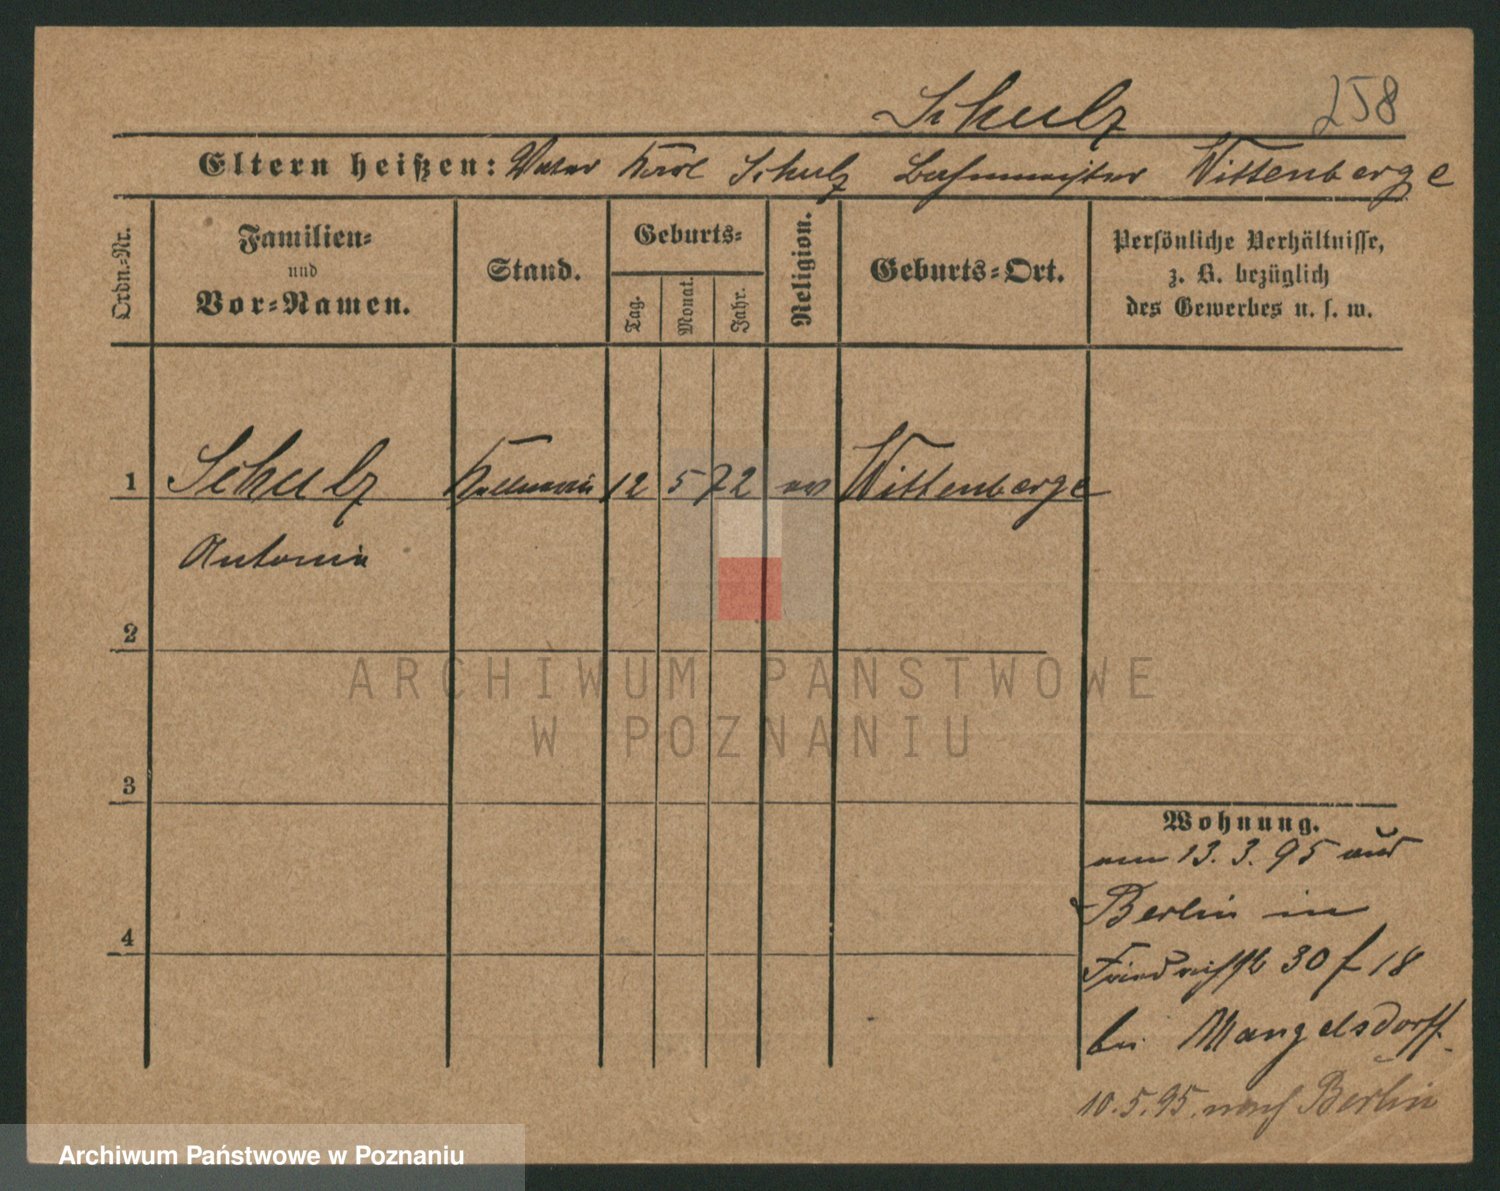 258
Schulz
Eltern heißen: Vater Karl Schulz Bahnmeister Wittenberge
Ordn.-Nr.
Familien-
und
Vor-Namen.
Stand.
Geburts-
Tag.
Monat.
Jahr.
Religion.
Geburts-Ort.
Persönliche Verhältnisse,
z. B. bezüglich
des Gewerbes u. s. w.
1 Schulz Kellnerin 12 5 72 ev Wittenberge
Antonie
2
3
4
Wohnung.
am 13. 3. 95 aus
Berlin in
Friedrichstr 30 f 18
bei Mangelsdorff.
10. 5. 95. nach Berlin
ARCHIWUM PAŃSTWOWE
W POZNANIU
Archiwum Państwowe w Poznaniu